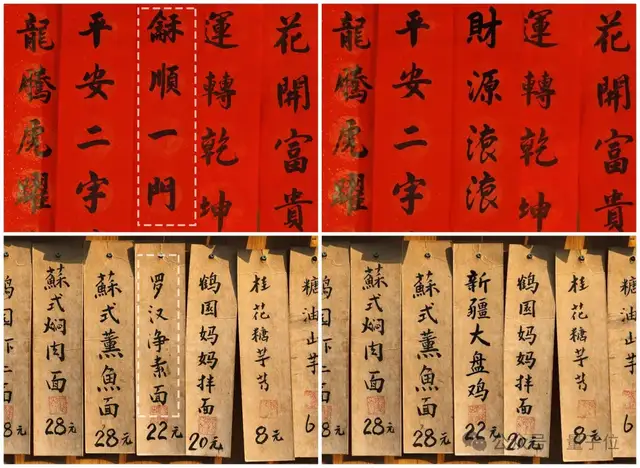 龍騰虎躍
平安二字
龢順一門
運轉乾坤
花開富貴
龍騰虎躍
平安二字
財源滾滾
運轉乾坤
花開富貴
8元
蘇式焖肉面
28元
蘇式薰魚面
28元
罗汉净素面
22元
鶴园妈妈拌面
20元
桂花糖芋艿
8元
糖油山芋
6
8元
蘇式焖肉面
28元
蘇式薰魚面
28元
新疆大盘鸡
22元
鶴园妈妈拌面
20元
桂花糖芋艿
8元
糖油山芋
6
公众号 · 量子位